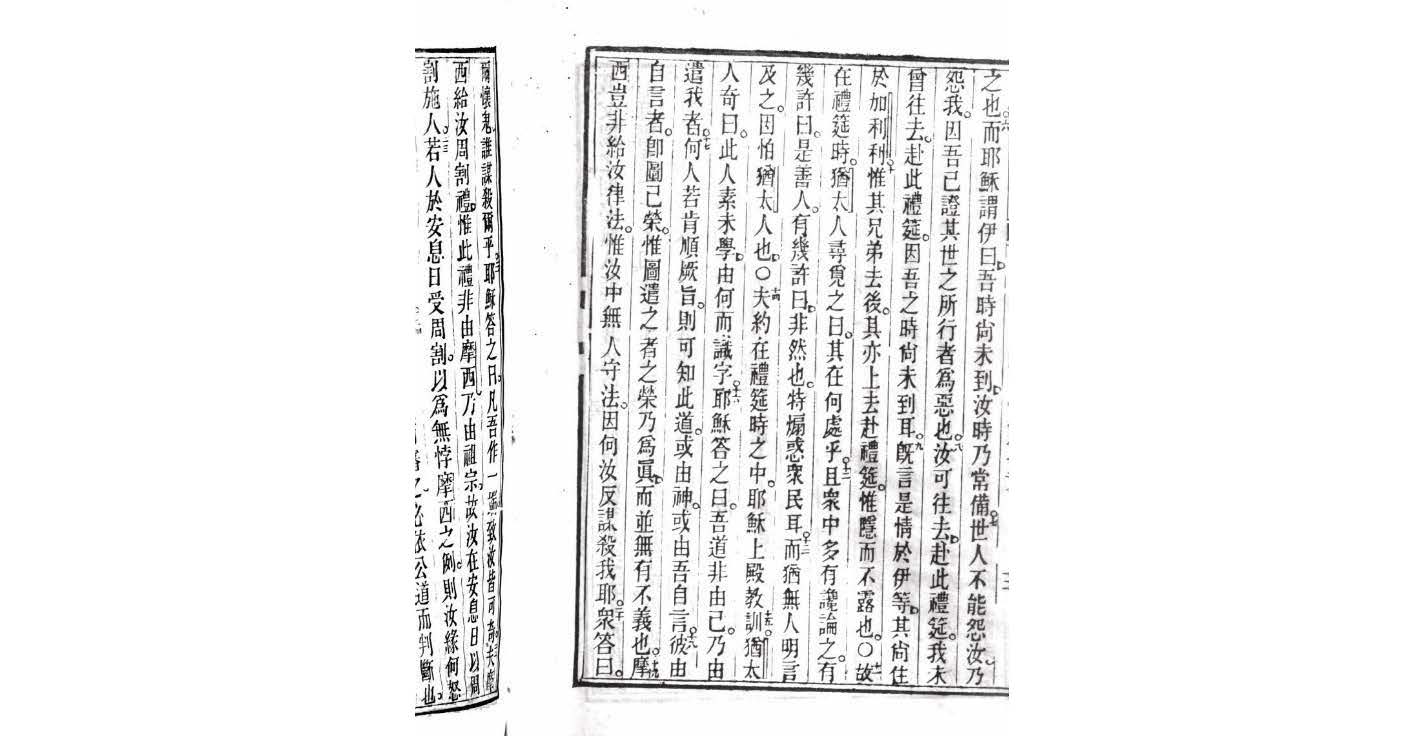 之也。六而耶穌謂伊曰。吾時尙未到。汝時乃常備。七世人不能怨汝。乃
怨我。因吾已證其世之所行者爲惡也。八汝可往去。赴此禮筵。我未
曾往去。赴此禮筵。因吾之時尙未到耳。九旣言是情於伊等。其尙住
於加利利。十惟其兄弟去後。其亦上去赴禮筵。惟隱而不露也。〇十一故
在禮筵時。猶太人尋覓之曰。其在何處乎。十二且衆中多有讒論之。有
幾許曰。是善人。有幾許曰。非然也。特煽惑衆民耳。十三而猶無人明言
及之。因怕猶太人也。〇十四夫約在禮筵時之中。耶穌上殿教訓。十五猶太
人奇曰。此人素未學。由何而識字。十六耶穌答之曰。吾道非由己。乃由
遣我者。十七何人若肯順厥旨。則可知此道。或由神。或由吾自言。十八彼由
自言者。卽圖己榮。惟圖遣之者之榮乃爲眞。而並無有不義也。十九摩
西豈非給汝律法。惟汝中無人守法。因何汝反謀殺我耶。二十衆答曰。
爾懷鬼。誰謀殺爾乎。耶穌答之曰。凡吾作一 致汝皆可奇。夫摩
西給汝周割禮。惟此禮非由摩西。乃由祖宗。故汝在安息日以周
割施人。若人於安息日受周割。以爲無悖摩西之例。則汝緣何怒
之必依公道而判斷也。